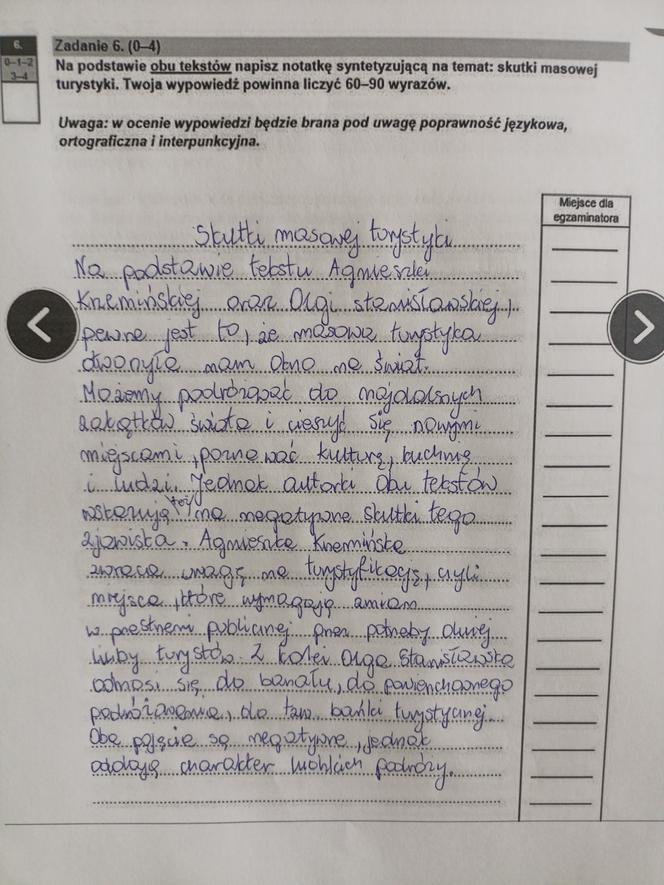 6.
0–1–2
3–4
Zadanie 6. (0–4)
Na podstawie obu tekstów napisz notatkę syntetyzującą na temat: skutki masowej
turystyki. Twoja wypowiedź powinna liczyć 60–90 wyrazów.
Uwaga: w ocenie wypowiedzi będzie brana pod uwagę poprawność językowa,
ortograficzna i interpunkcyjna.
Miejsce dla
egzaminatora
Skutki masowej turystyki
Na podstawie tekstu Agnieszki
Krzemińskiej oraz Olgi Stanisławskiej,
pewne jest to, że masowa turystyka
otworzyła nam okno na świat.
Możemy podróżować do najdalszych
zakątków świata i cieszyć się nowymi
miejscami, poznawać kulturę, kuchnię
i ludzi. Jednak autorki obu tekstów
wskazują też na negatywne skutki tego
zjawiska. Agnieszka Krzemińska
zwraca uwagę na turystyfikację, czyli
miejsca, które wymagają zmian
w przestrzeni publicznej przez potrzeby dużej
liczby turystów. Z kolei Olga Stanisławska
odnosi się do banału, do powierzchownego
podróżowania, do tzw. bańki turystycznej.
Oba pojęcia są negatywne, jednak
oddają charakter ludzkich podróży.